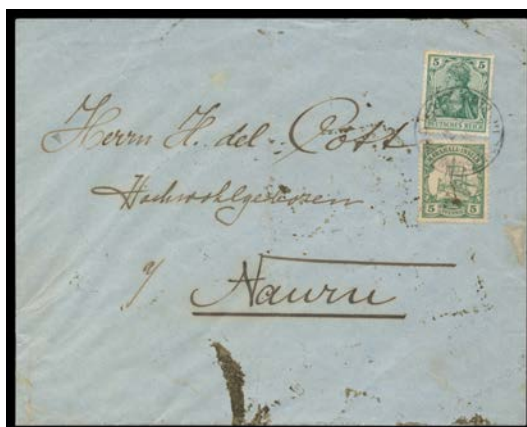 5 5
DEUTSCHES REICH
MARSHALL-INSELN
5 5
Herrn H. del
Hochwohlgeboren
Nauru